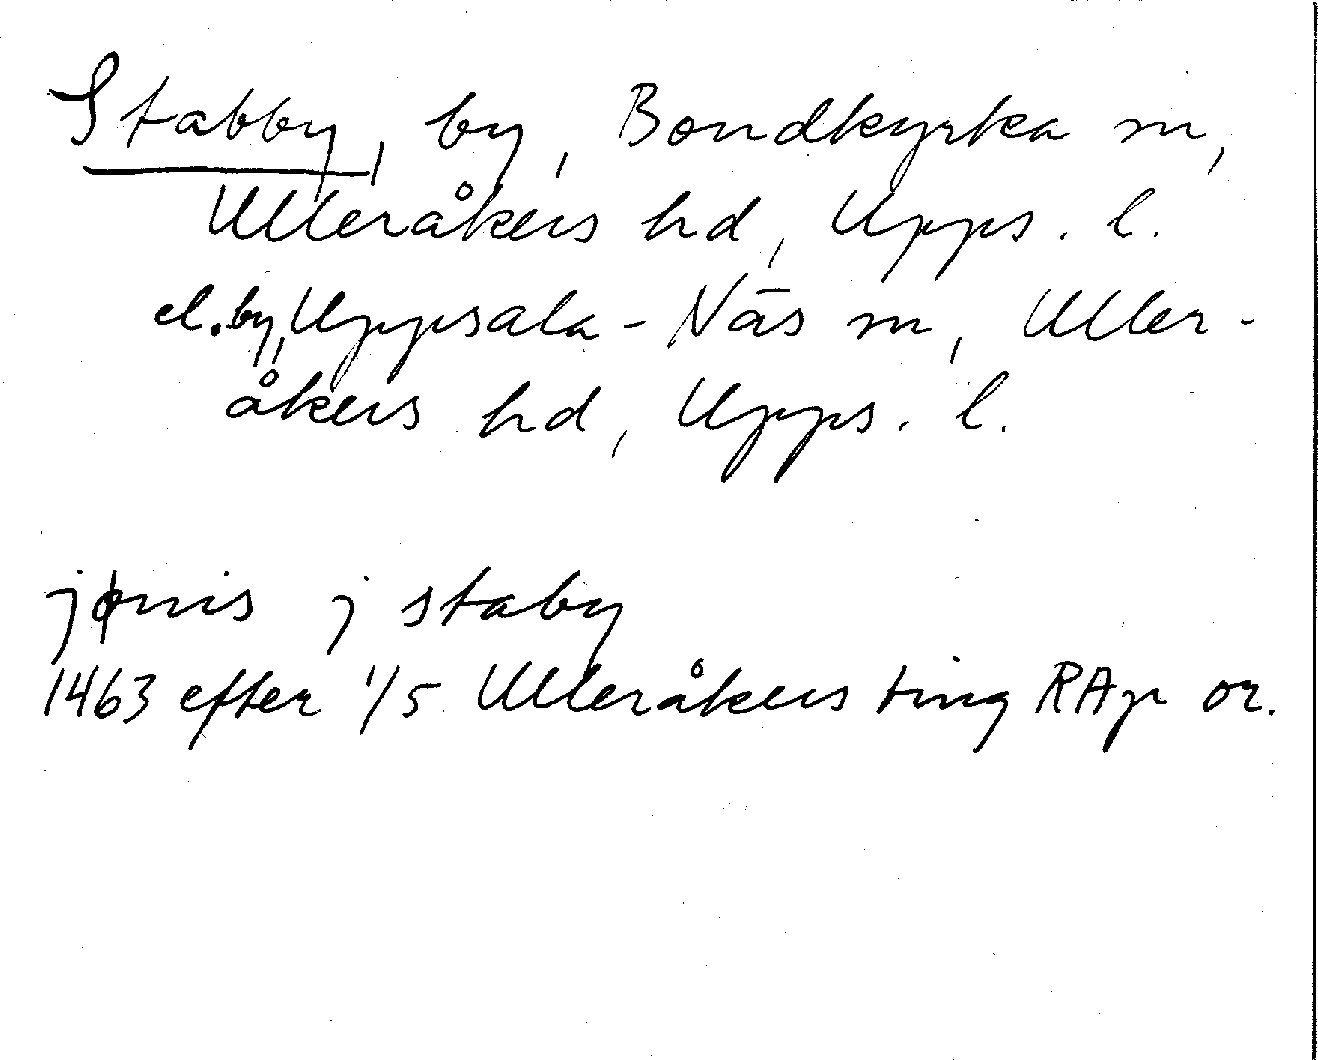 Stabby, by, Bondkyrka sn,
Ulleråkers hd, Upps. l.
el. by, Uppsala-Näs sn, Uller-
åkers hd, Upps. l.
jønis j staby
1463 efter 1/5 Ulleråkers ting RAp or.